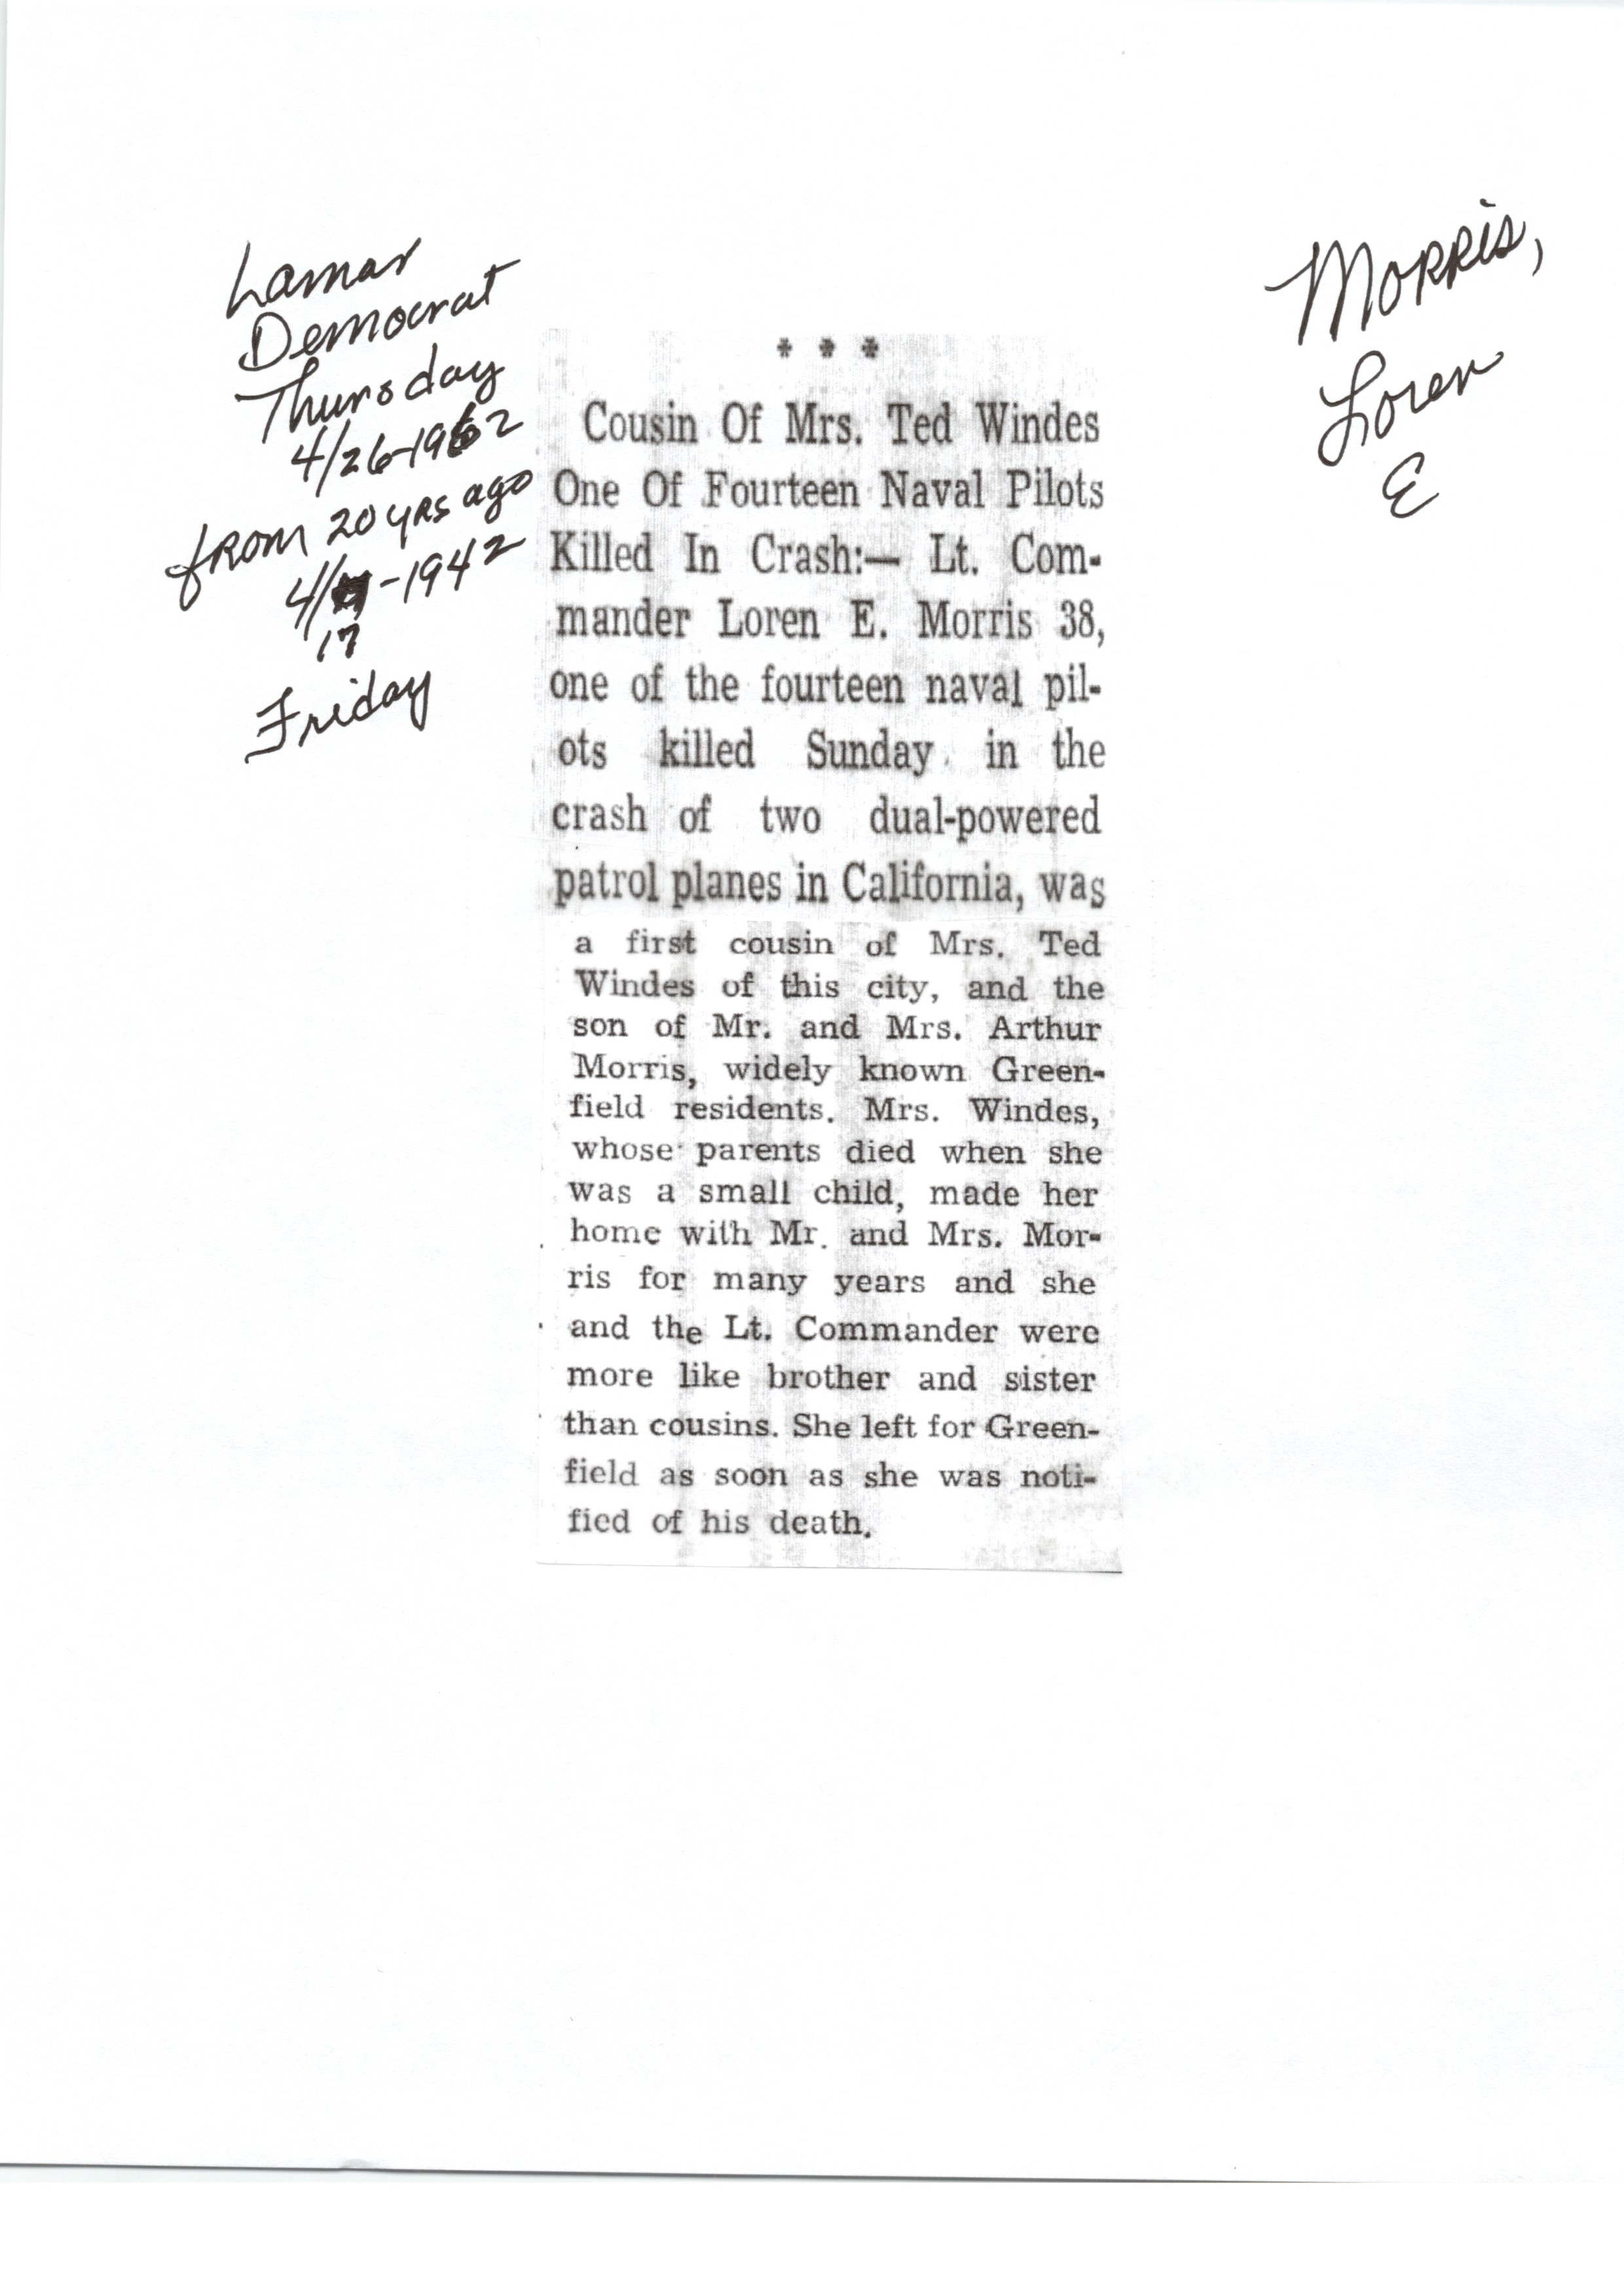 Lamar
Democrat
Thursday
4/26-1962
from 20 yrs ago
4/ -1942
17
Friday
Morris,
Loren
E
* * *
Cousin Of Mrs. Ted Windes
One Of Fourteen Naval Pilots
Killed In Crash:— Lt. Com-
mander Loren E. Morris 38,
one of the fourteen naval pil-
ots killed Sunday in the
crash of two dual-powered
patrol planes in California, was
a first cousin of Mrs. Ted
Windes of this city, and the
son of Mr. and Mrs. Arthur
Morris, widely known Green-
field residents. Mrs. Windes,
whose parents died when she
was a small child, made her
home with Mr. and Mrs. Mor-
ris for many years and she
and the Lt. Commander were
more like brother and sister
than cousins. She left for Green-
field as soon as she was noti-
fied of his death.